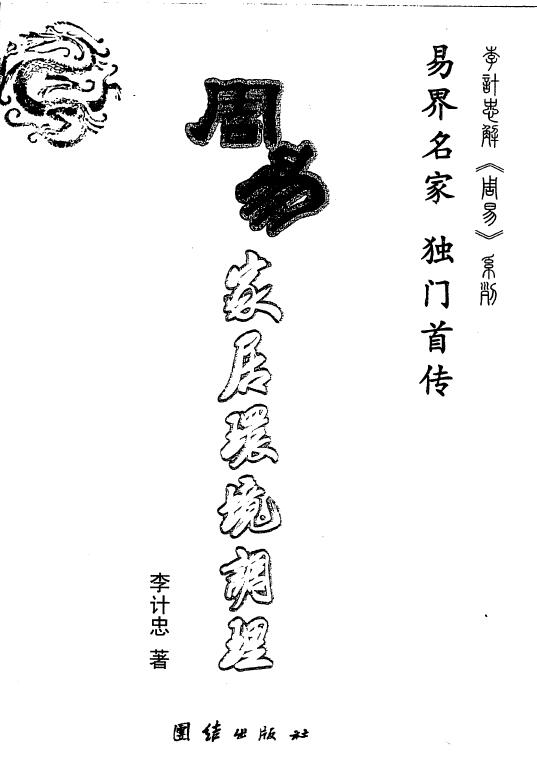 李計忠解《周易》系列
易界名家 独门首传
周易
家居環境調理
李计忠 著
團结出版社